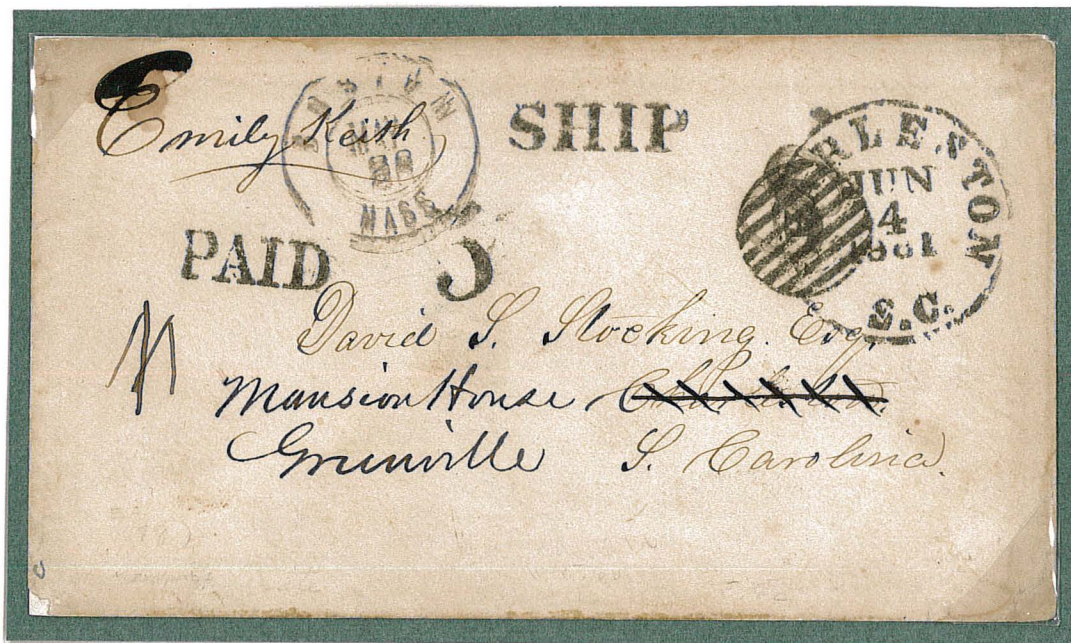 Emily Keith
BOSTON
MASS
SHIP
CHARLESTON
JUN
4
1861
S.C.
PAID
5
David S. Stocking. Esq.
Mansion House Charleston.
Greenville S. Carolina.